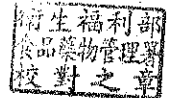 衛生福利部
食品藥物管理署
校對之章